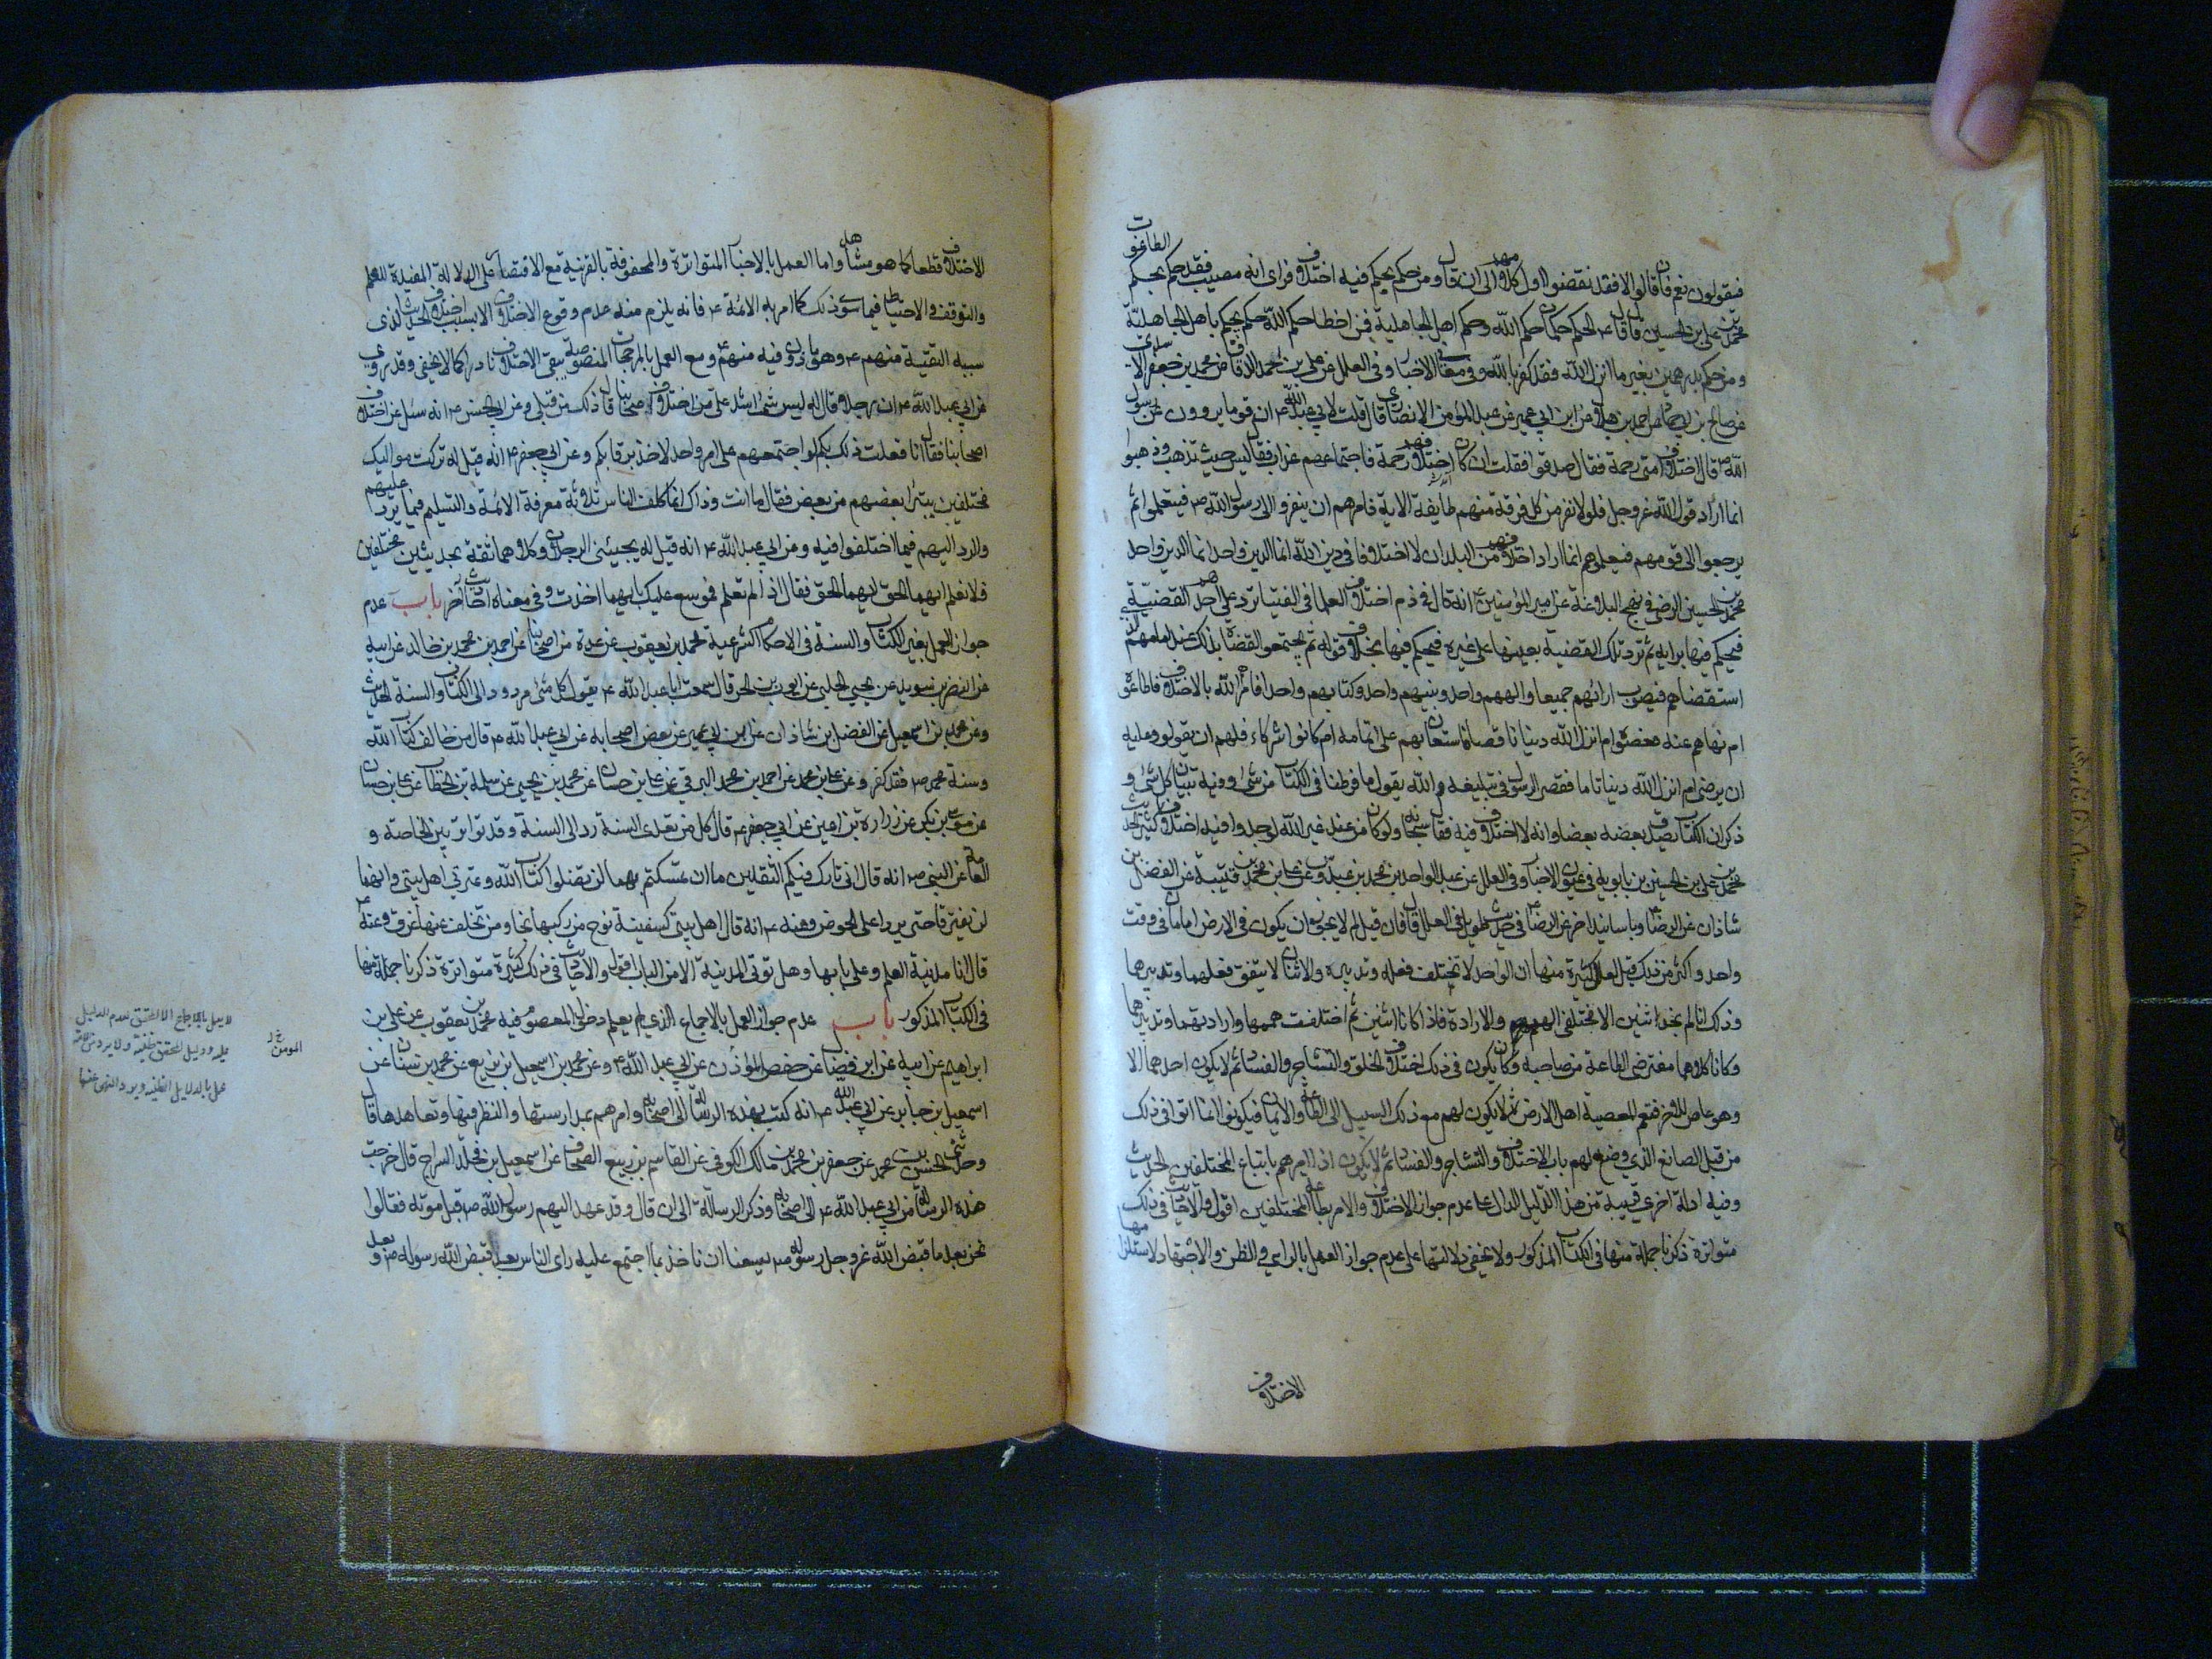 فيقولون نعم فان قالوا لا فقد نقضوا اول كلامهم الى ان قال ومن حكم بحكم فيه اختلاف فراى انه مصيب فقد حكم بحكم الطاغوت
محمد بن علي بن الحسين قال قال ع الحكم حكمان حكم الله وحكم اهل الجاهلية فمن اخطا حكم الله حكم بحكم اهل الجاهلية
ومن حكم بدرهمين بغير ما انزل الله فقد كفر بالله وفي معاني الاخبار وفي العلل عن علي بن احمد الدقاق عن محمد بن جعفر الاسدي
عن صالح بن ابي حماد عن احمد بن هلال عن ابن ابي عمير عن عبد المؤمن الانصاري قال قلت لابي عبد الله ع ان قوما يروون عن رسول
الله ص قال اختلاف امتي رحمة فقال صدقوا فقلت ان كان اختلافهم رحمة فاجتماعهم عذاب فقال ليس حيث تذهب وذهبوا
انما اراد قول الله عز وجل فلولا نفر من كل فرقة منهم طايفة الاية فامرهم ان ينفروا الى رسول الله ص فيتعلموا ثم
يرجعوا الى قومهم فيعلموهم انما اراد اختلافهم من البلدان لا اختلافا في دين الله انما الدين واحد انما الدين واحد
محمد بن الحسين الرضي في نهج البلاغة عن امير المؤمنين ع انه قال في ذم اختلاف العلما في الفتيا ترد على احدهم القضية
فيحكم فيها برايه ثم ترد تلك القضية بعينها على غيره فيحكم فيها بخلاف قوله ثم يجتمع القضاة بذلك عند امامهم الذي
استقضاهم فيصوب ارائهم جميعا والههم واحد ونبيهم واحد وكتابهم واحد افامرهم الله بالاختلاف فاطاعوه
ام نهاهم عنه فعصوه ام انزل الله دينا ناقصا فاستعان بهم على اتمامه ام كانوا شركاء فلهم ان يقولوا وعليه
ان يرضى ام انزل الله دينا تاما فقصر الرسول في تبليغه والله يقول ما فرطنا في الكتاب من شئ وفيه تبيان كل شئ و
ذكر ان الكتاب يصدق بعضه بعضا وانه لا اختلاف فيه فقال سبحانه ولو كان من عند غير الله لوجدوا فيه اختلافا كثيرا الحديث
محمد بن علي بن الحسين بن بابويه في عيون الاخبار وفي العلل عن عبد الواحد بن محمد بن عبدوس عن علي بن محمد بن قتيبة عن الفضل بن
شاذان عن الرضا ع وباسانيد اخر عن الرضا ع في حديث طويل في العلل قال فان قيل لم لا يجوز ان يكون في الارض امامان في وقت
واحد واكثر من ذلك قيل لعلل كثيرة منها ان الواحد لا يختلف فعله وتدبيره والاثنان لا يتفق فعلهما وتدبيرهما
وذلك انا لم نجد اثنين الا مختلفي الهمم والارادة فاذا كانا اثنين ثم اختلفت هممهما وارادتهما وتدبيرهما
وكانا كلاهما مفترضي الطاعة من صاحبه فكان يكون في ذلك اختلاف الخلق والتشاجر والفساد ثم لا يكون احدهما الا
وهو عاص للاخر فتعم المعصية اهل الارض ثم لا يكون لهم مع ذلك السبيل الى الطاعة والايمان فيكونوا انما اتوا في ذلك
من قبل الصانع الذي وضع لهم باب الاختلاف والتشاجر والفساد ثم لا يكون اذا امرهم باتباع المختلفين الحديث
وفيه ادلة اخرى قريبة من هذا الدليل الدال على عدم جواز الاختلاف والامر بطاعة المختلفين اقول والاحاديث في ذلك
متواترة ذكرنا جملة منها في الكتاب المذكور ولا يخفى دلالتها على عدم جواز العمل بالراي والظن والاجتهاد لاستلزامها
الاختلاف
الاختلاف قطعا كما هو مشاهد واما العمل بالاخبار المتواترة والمحفوفة بالقرينة مع الاقتصار على الدلالة المفيدة للعلم
والتوقف والاحتياط فيما سوى ذلك كما امر به الائمة ع فانه يلزم منه عدم وقوع الاختلاف الا بسبب اختلاف الحديث الذي
سببه التقية منهم ع وهو ماذون فيه منهم ع ومع العمل بالمرجحات المنصوصة يبقى الاختلاف نادرا كما لا يخفى وقد روي
عن ابي عبد الله ع ان رجلا قال له ليس شئ اشد علي من اختلاف اصحابنا قال ذلك من قبلي وعن ابي الحسن ع انه سئل عن اختلاف
اصحابنا فقال انا فعلت ذلك بكم لو اجتمعتم على امر واحد لاخذ برقابكم وعن ابي جعفر ع انه قيل له تركت مواليك
مختلفين يتبرا بعضهم من بعض فقال ما انت وذاك انما كلف الناس ثلاثة معرفة الائمة والتسليم فيما يرد عليهم
والرد اليهم فيما اختلفوا فيه وعن ابي عبد الله ع انه قيل له يجيئني الرجلان وكلاهما ثقة بحديثين مختلفين
فلا نعلم ايهما الحق فقال اذا لم تعلم فموسع عليك بايهما اخذت وفي معناه احاديث اخر باب عدم
جواز العمل بغير الكتاب والسنة في الاحكام الشرعية محمد بن يعقوب عن عدة من اصحابنا عن احمد بن محمد بن خالد عن ابيه
عن النضر بن سويد عن يحيى الحلبي عن ايوب بن الحر قال سمعت ابا عبد الله ع يقول كل شئ مردود الى الكتاب والسنة الحديث
وعن محمد بن اسمعيل عن الفضل بن شاذان عن ابن ابي عمير عن بعض اصحابه عن ابي عبد الله ع قال من خالف كتاب الله
وسنة محمد ص فقد كفر وعن علي بن محمد عن احمد بن محمد البرقي عن علي بن حسان عن محمد بن يحيى عن سلمة بن الخطاب عن علي بن حسان
عن موسى بن بكر عن زرارة بن اعين عن ابي جعفر ع قال كل من تعدى السنة رد الى السنة وقد تواتر بين الخاصة و
العامة عن النبي ص انه قال اني تارك فيكم الثقلين ما ان تمسكتم بهما لن تضلوا كتاب الله وعترتي اهل بيتي وانهما
لن يفترقا حتى يردا علي الحوض وعنه ع انه قال اهل بيتي كسفينة نوح من ركبها نجا ومن تخلف عنها غرق وعنه ع
قال انا مدينة العلم وعلي بابها وهل تؤتى المدينة الا من الباب اقول والاحاديث في ذلك كثيرة متواترة ذكرنا جملة منها
في الكتاب المذكور باب عدم جواز العمل بالاجماع الذي لم يعلم دخول المعصوم فيه محمد بن يعقوب عن علي بن
ابراهيم عن ابيه عن ابن فضال عن حفص المؤذن عن ابي عبد الله ع وعن محمد بن اسمعيل بن بزيع عن محمد بن سنان عن
اسمعيل بن جابر عن ابي عبد الله ع انه كتب بهذه الرسالة الى اصحابه وامرهم بمدارستها والنظر فيها وتعاهدها قال
وحدثني الحسن بن محمد عن جعفر بن محمد بن مالك الكوفي عن القاسم بن ربيع الصحاف عن اسمعيل بن مخلد السراج قال خرجت
هذه الرسالة من ابي عبد الله ع الى اصحابه وذكر الرسالة الى ان قال وقد عهد اليهم رسول الله ص قبل موته فقالوا
نحن بعد ما قبض الله عز وجل رسوله ص يسعنا ان ناخذ بما اجتمع عليه راى الناس بعد قبض الله رسوله ص وبعد